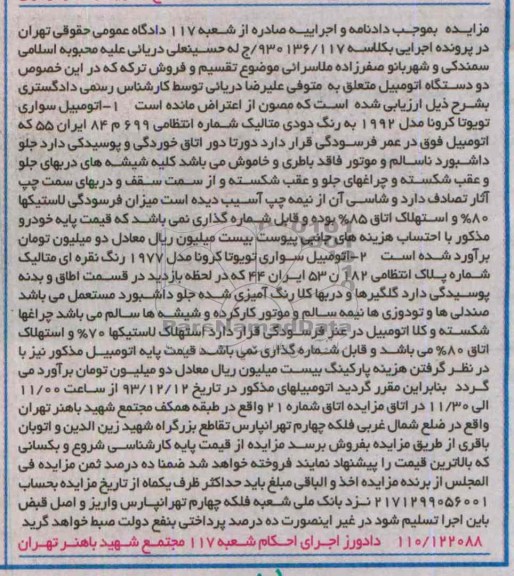 مزایده بموجب دادنامه و اجراییه صادره از شعبه ۱۱۷ دادگاه عمومی حقوقی تهران
در پرونده اجرایی بکلاسه ۹۳۰۱۳۶/۱۱۷/ج له حسینعلی دریانی علیه محبوبه اسلامی
سمندکی و شهربانو صفرزاده ملاسرائی موضوع تقسیم و فروش ترکه که در این خصوص
دو دستگاه اتومبیل متعلق به متوفی علیرضا دریانی توسط کارشناس رسمی دادگستری
بشرح ذیل ارزیابی شده است که مصون از اعتراض مانده است ۱-اتومبیل سواری
تویوتا کرونا مدل ۱۹۹۲ به رنگ دودی متالیک شماره انتظامی ۶۹۹ م ۸۴ ایران ۵۵ که
اتومبیل فوق در عمر فرسودگی قرار دارد دورتا دور اتاق خوردگی و پوسیدکی دارد جلو
داشبورد ناسالم و موتور فاقد باطری و خاموش می باشد کلیه شیشه های دربهای جلو
و عقب شکسته و چراغهای جلو و عقب شکسته و از سمت سقف و دربهای سمت چپ
آثار تصادف دارد و شاسی آن از نیمه چپ آسیب دیده است میزان فرسودگی لاستیکها
۸۰% و استهلاک اتاق ۸۵% بوده و قابل شماره گذاری نمی باشد که قیمت پایه خودرو
مذکور با احتساب هزینه های جانبی پیوست بیست میلیون ریال معادل دو میلیون تومان
برآورد شده است ۲-اتومبیل سواری تویوتا کرونا مدل ۱۹۷۷ رنگ نقره ای متالیک
شماره پلاک انتظامی ۱۸۲ ن ۵۳ ایران ۴۴ که در لحظه بازدید در قسمت اطاق و بدنه
پوسیدگی دارد گلگیرها و دربها کلا رنگ آمیزی شده جلو داشبورد مستعمل می باشد
صندلی ها و تودوزی ها نیمه سالم و موتور کارکرده و شیشه ها سالم می باشد چراغها
شکسته و کلا اتومبیل در عمر فرسودگی قرار دارد استهلاک لاستیکها ۷۰% و استهلاک
اتاق ۸۰% می باشد و قابل شماره گذاری نمی باشد قیمت پایه اتومبیل مذکور نیز با
در نظر گرفتن هزینه پارکینگ بیست میلیون ریال معادل دو میلیون تومان برآورد می
گردد بنابراین مقرر گردید اتومبیلهای مذکور در تاریخ ۹۳/۱۲/۱۲ از ساعت ۱۱/۰۰
الی ۱۱/۳۰ در اتاق مزایده اتاق شماره ۲۱ واقع در طبقه همکف مجتمع شهید باهنر تهران
واقع در ضلع شمال غربی فلکه چهارم تهرانپارس تقاطع بزرگراه شهید زین الدین و اتوبان
باقری از طریق مزایده بفروش برسد مزایده از قیمت پایه کارشناسی شروع و بکسانی
که بالاترین قیمت را پیشنهاد نمایند فروخته خواهد شد ضمنا ده درصد ثمن مزایده فی
المجلس از برنده مزایده اخذ و الباقی مبلغ باید حداکثر ظرف یکماه از تاریخ مزایده بحساب
۲۱۷۱۲۹۹۰۵۶۰۰۱ نزد بانک ملی شعبه فلکه چهارم تهرانپارس واریز و اصل قبض
باین اجرا تسلیم شود در غیر اینصورت ده درصد پرداختی بنفع دولت ضبط خواهد گردید
۱۱۰/۱۲۲۰۸۸ دادورز اجرای احکام شعبه ۱۱۷ مجتمع شهید باهنر تهران